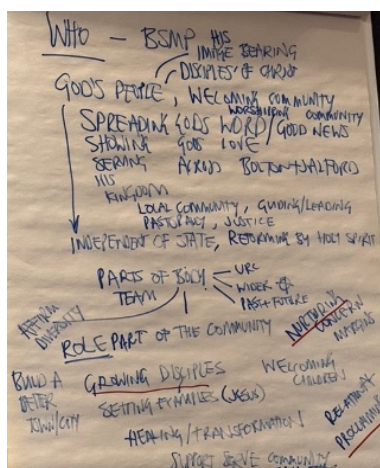 WHO – BSMP HIS
IMAGE BEARING
DISCIPLES OF CHRIST
GOD'S PEOPLE, WELCOMING COMMUNITY
WORSHIPPING COMMUNITY
SPREADING GODS WORD/GOOD NEWS
SHOWING GODS LOVE
SERVING ACROSS BOLTON + SALFORD
HIS
KINGDOM
LOCAL COMMUNITY, GUIDING/LEADING
JUSTICE
INDEPENDENT OF STATE, REFORMING BY HOLY SPIRIT
PARTS OF BODY – URC
TEAM WIDER
PAST + FUTURE
AFFIRM
DIVERSITY
ROLE PART OF THE COMMUNITY
NURTURING
CONCERN
MARGINS
BUILD A
BETTER
TOWN/CITY
GROWING DISCIPLES
WELCOMING
CHILDREN
SETTING EXAMPLES (JESUS)
HEALING/TRANSFORMATION
SUPPORT SERVE COMMUNITY